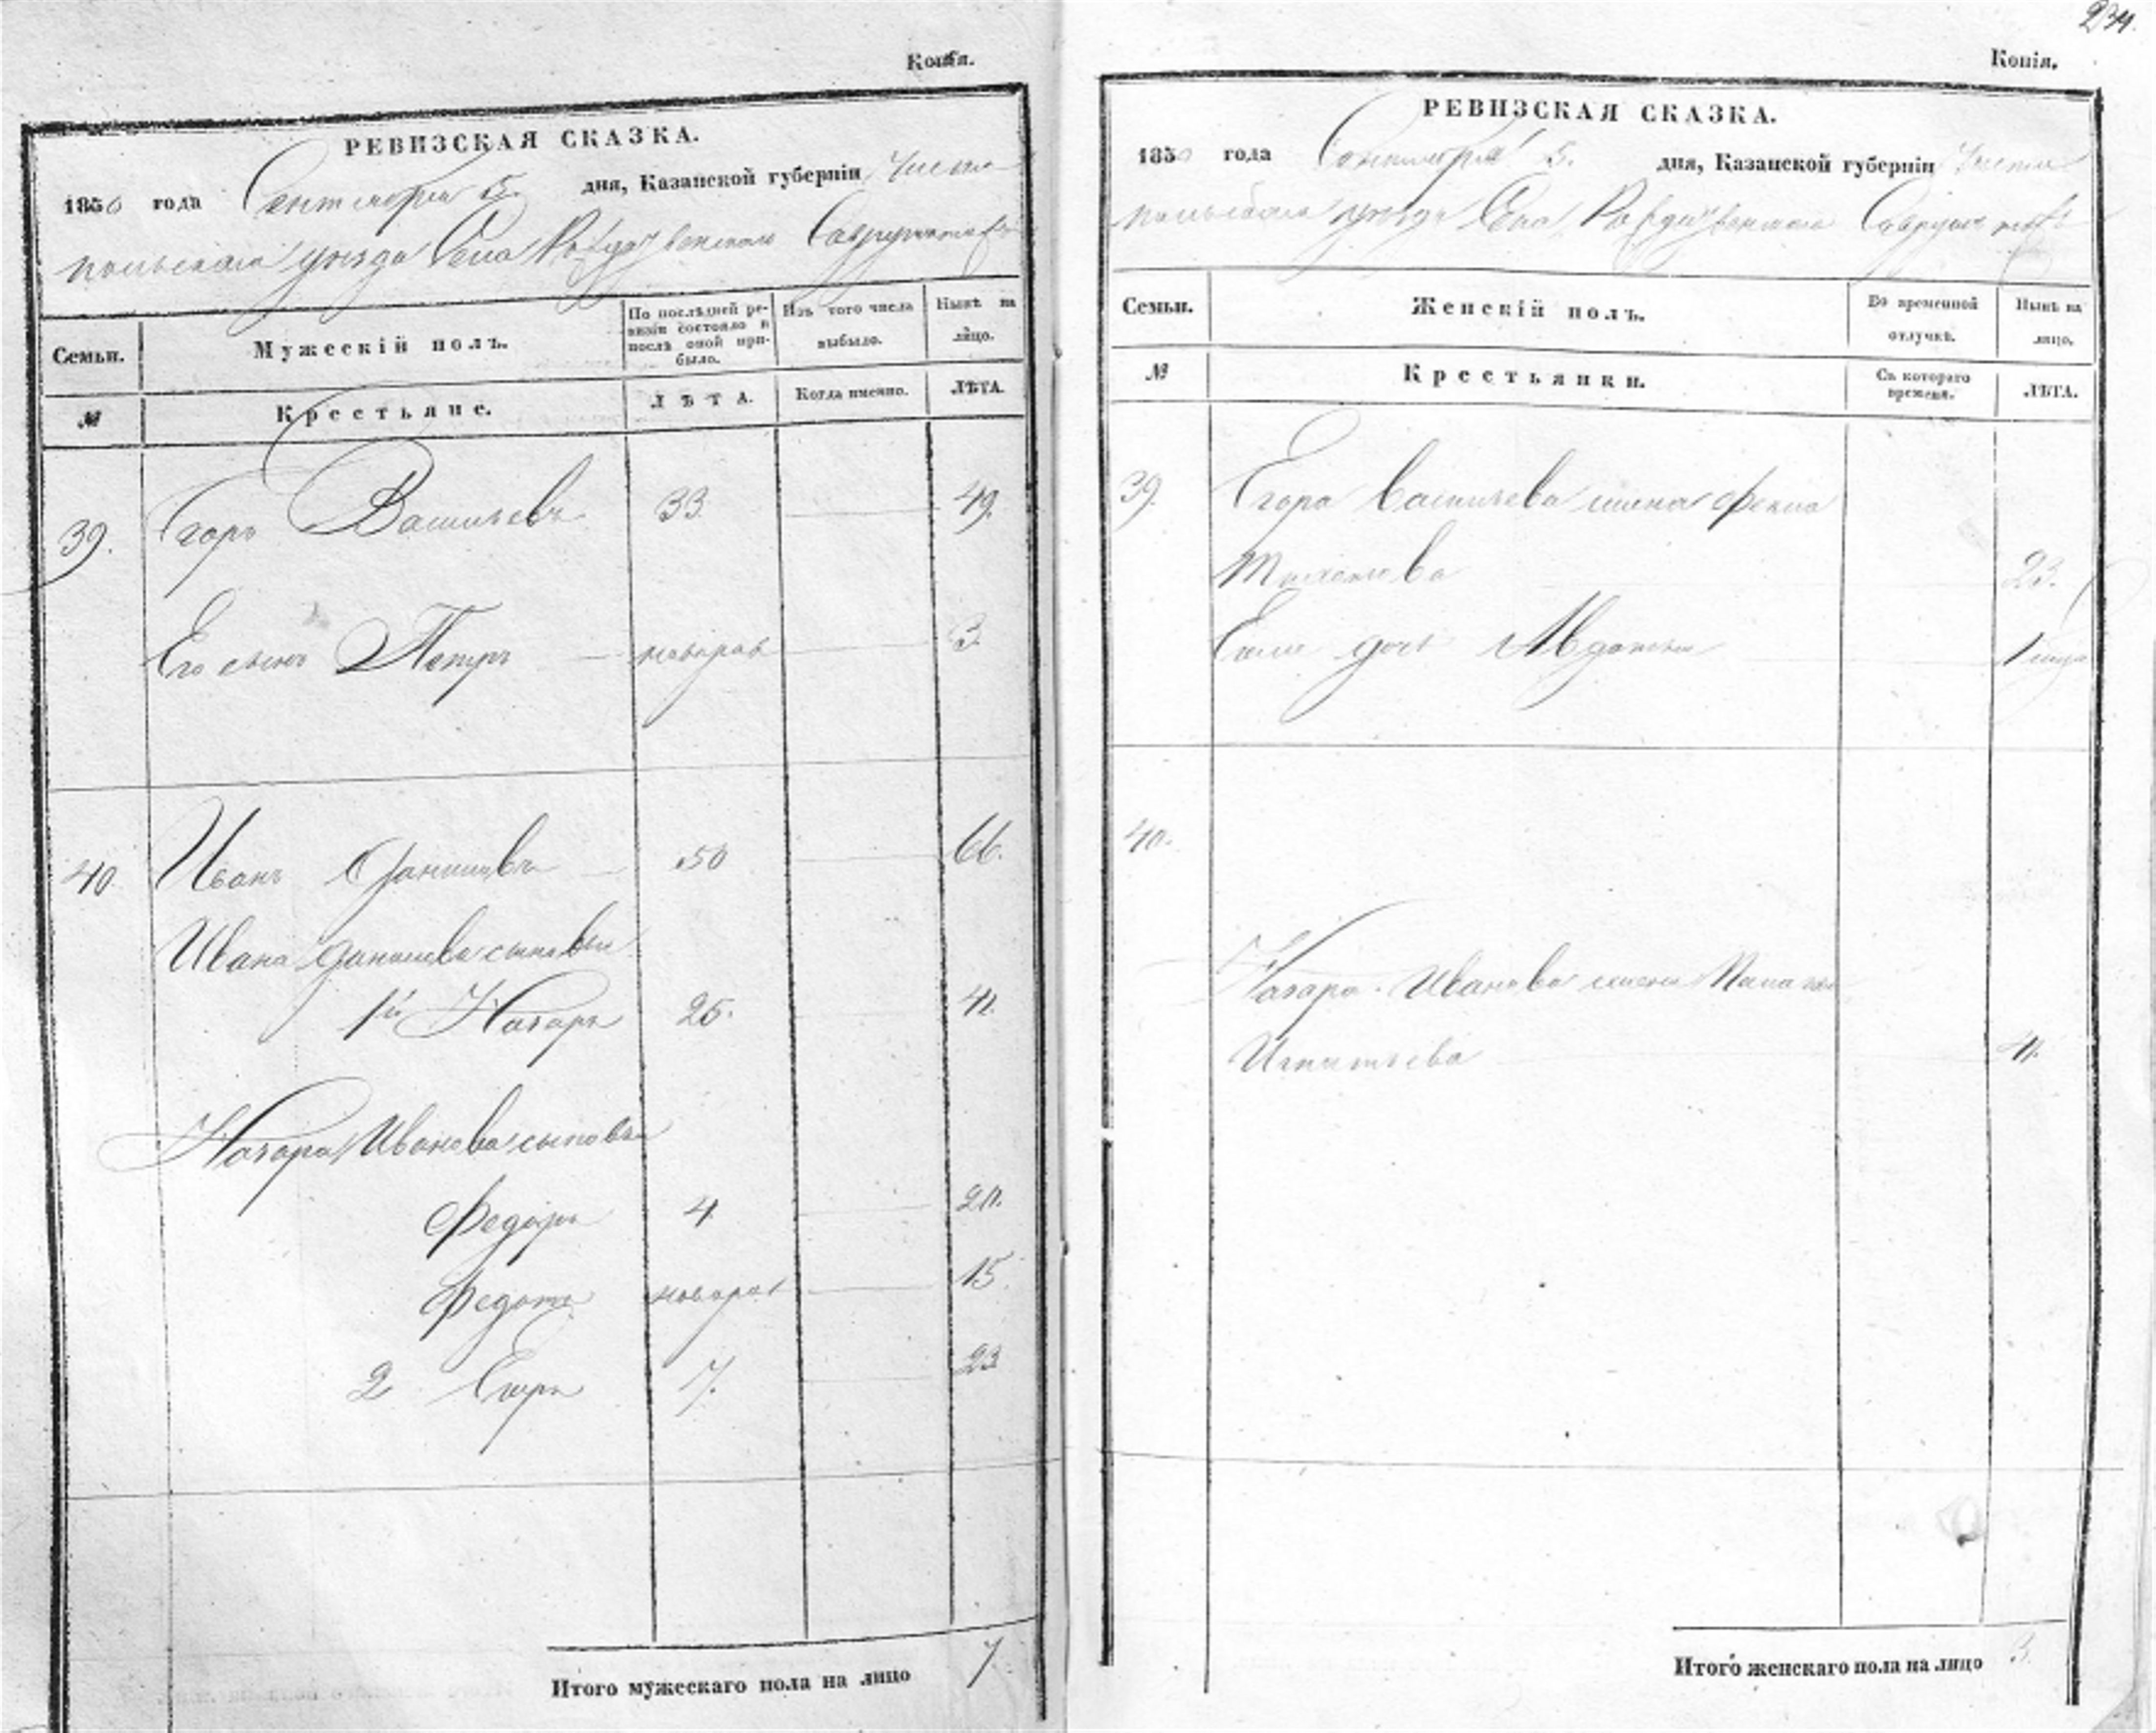 Копія.
РЕВИЗСКАЯ СКАЗКА.
1850 года Сентября 5. дня, Казанской губерніи Чисто
польскаго уезда Села Рождественскаго
Семьи.
Мужескій полъ.
По послѣдней ре-
визіи состояло и
послѣ оной при-
было.
Изъ того числа
выбыло.
Нынѣ на
лицо.
№
Крестьяне.
ЛѢТА.
Когда именно.
ЛѢТА.
39. Егоръ Васильевъ 33. 49.
Его сынъ Петръ новорож 3.
40 Иванъ Даниловъ 50 66.
Ивана Данилова сыновья
1й Назаръ 25. 41.
Назара Иванова сыновья
Федоръ 4 20.
Федотъ новорож 15.
2 Егоръ 7. 23
Итого мужескаго пола на лицо 7
234.
Копія.
РЕВИЗСКАЯ СКАЗКА.
1850 года Сентября 5. дня, Казанской губерніи Чисто
польскаго уезда Села Рождественскаго
Семьи.
Женскій полъ.
Во временной
отлучкѣ.
Нынѣ на
лицо.
№
Крестьянки.
Съ котораго
времени.
ЛѢТА.
39. Егора Васильева жена Фекла
23.
дочь Авдотья 1
40.
Назара Иванова жена
Игнатьева 41.
Итого женскаго пола на лицо 3.